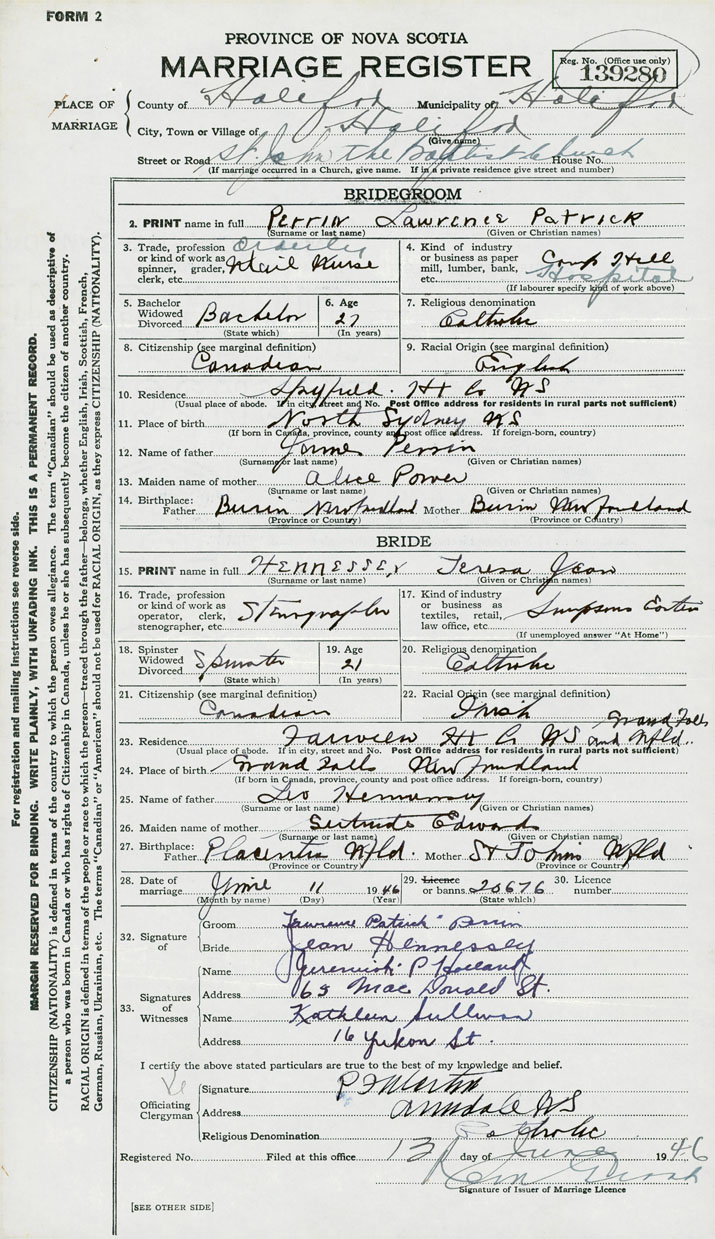 FORM 2
PROVINCE OF NOVA SCOTIA
MARRIAGE REGISTER
Reg. No. (Office use only)
139280
PLACE OF MARRIAGE
County of Halifax Municipality of Halifax
City, Town or Village of Halifax
(Give name)
Street or Road St. John the Baptist Church House No.
(If marriage occurred in a Church, give name. If in a private residence give street and number)
BRIDEGROOM
2. PRINT name in full PERRIN LAWRENCE PATRICK
(Surname or last name) (Given or Christian names)
3. Trade, profession or kind of work as spinner, grader, clerk, etc. Orderly Mail Nurse
4. Kind of industry or business as paper mill, lumber, bank, etc. Camp Hill Hospital
(If labourer specify kind of work above)
5. Bachelor Widowed Divorced Bachelor
(State which)
6. Age 27
(In years)
7. Religious denomination Catholic
8. Citizenship (see marginal definition) Canadian
9. Racial Origin (see marginal definition) English
10. Residence Spryfield. Hx Co NS
(Usual place of abode. If in city, street and No. Post Office address for residents in rural parts not sufficient)
11. Place of birth North Sydney NS
(If born in Canada, province, county and post office address. If foreign-born, country)
12. Name of father James Perrin
(Surname or last name) (Given or Christian names)
13. Maiden name of mother Alice Power
(Surname or last name) (Given or Christian names)
14. Birthplace: Father Burin Newfoundland Mother Burin Newfoundland
(Province or Country) (Province or Country)
BRIDE
15. PRINT name in full HENNESSEY Teresa Jean
(Surname or last name) (Given or Christian names)
16. Trade, profession or kind of work as operator, clerk, stenographer, etc. Stenographer
17. Kind of industry or business as textiles, retail, law office, etc. Simpsons
(If unemployed answer "At Home")
18. Spinster Widowed Divorced Spinster
(State which)
19. Age 21
(In years)
20. Religious denomination Catholic
21. Citizenship (see marginal definition) Canadian
22. Racial Origin (see marginal definition) Irish
23. Residence Fairview Hx Co NS and Grand Falls Nfld.
(Usual place of abode. If in city, street and No. Post Office address for residents in rural parts not sufficient)
24. Place of birth Grand Falls Newfoundland
(If born in Canada, province, county and post office address. If foreign-born, country)
25. Name of father Leo Hennessy
(Surname or last name) (Given or Christian names)
26. Maiden name of mother Gertrude Edwards
(Surname or last name) (Given or Christian names)
27. Birthplace: Father Placentia Nfld. Mother St Johns Nfld
(Province or Country) (Province or Country)
28. Date of marriage June 11 1946
(Month by name) (Day) (Year)
29. Licence or banns. 20676
(State which)
30. Licence number
32. Signature of
Groom Lawrence Patrick Perrin
Bride Jean Hennessey
33. Signatures of Witnesses
Name Jeremiah P Holland
Address 65 MacDonald St.
Name Kathleen Sullivan
Address 16 Yukon St.
I certify the above stated particulars are true to the best of my knowledge and belief.
Officiating Clergyman
Signature
Address Armdale NS
Religious Denomination Catholic
Registered No. Filed at this office 13 day of June 1946
Signature of Issuer of Marriage Licence
[SEE OTHER SIDE]
For registration and mailing instructions see reverse side.
MARGIN RESERVED FOR BINDING. WRITE PLAINLY, WITH UNFADING INK. THIS IS A PERMANENT RECORD.
CITIZENSHIP (NATIONALITY) is defined in terms of the country to which the person owes allegiance. The term "Canadian" should be used as descriptive of
a person who was born in Canada or who has rights of Citizenship in Canada, unless he or she has subsequently become the citizen of another country.
RACIAL ORIGIN is defined in terms of the people or race to which the person—traced through the father—belongs, whether English, Irish, Scottish, French,
German, Russian, Ukrainian, etc. The terms "Canadian" or "American" should not be used for RACIAL ORIGIN, as they express CITIZENSHIP (NATIONALITY).